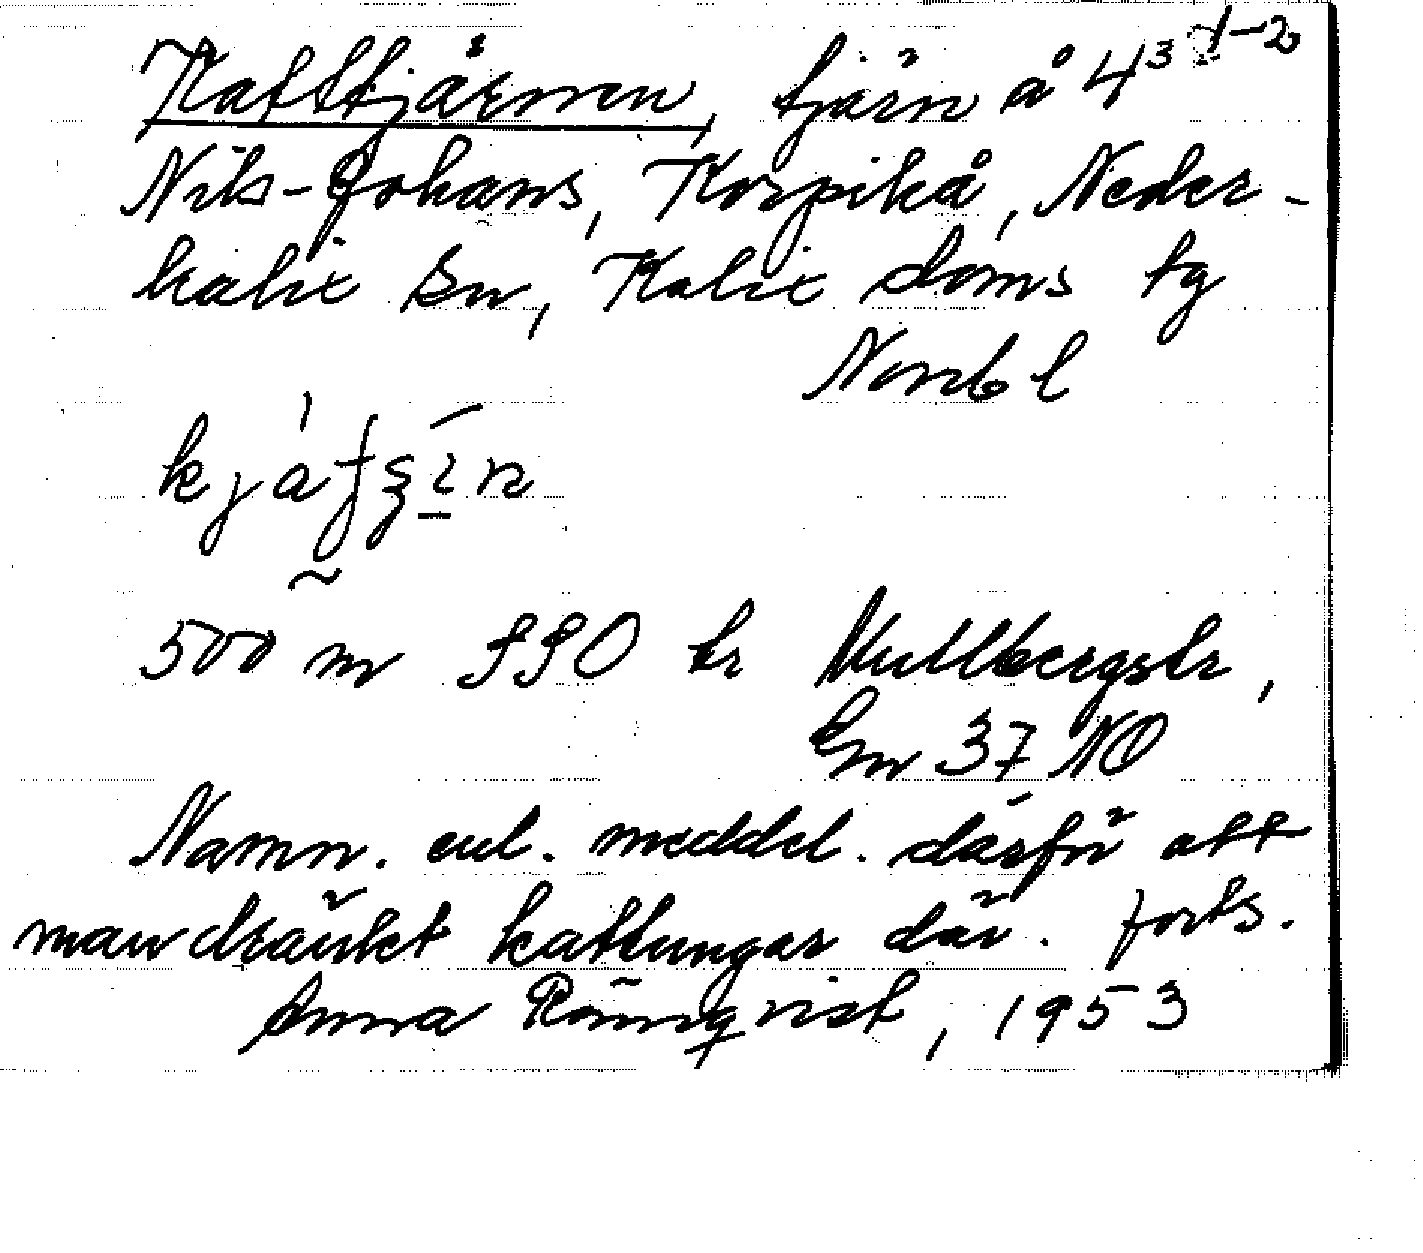 Kattjärnen, tjärn å 4³ 1-2
Nils-Johans, Korpikå, Neder-
kalix sn, Kalix doms tg
Norrb l
500 m SSO tr Kullbergstr,
Gm 37 NO
Namn. enl. meddel. därför att
man dränkt kattungar där. forts.
Anna Rönnqvist, 1953